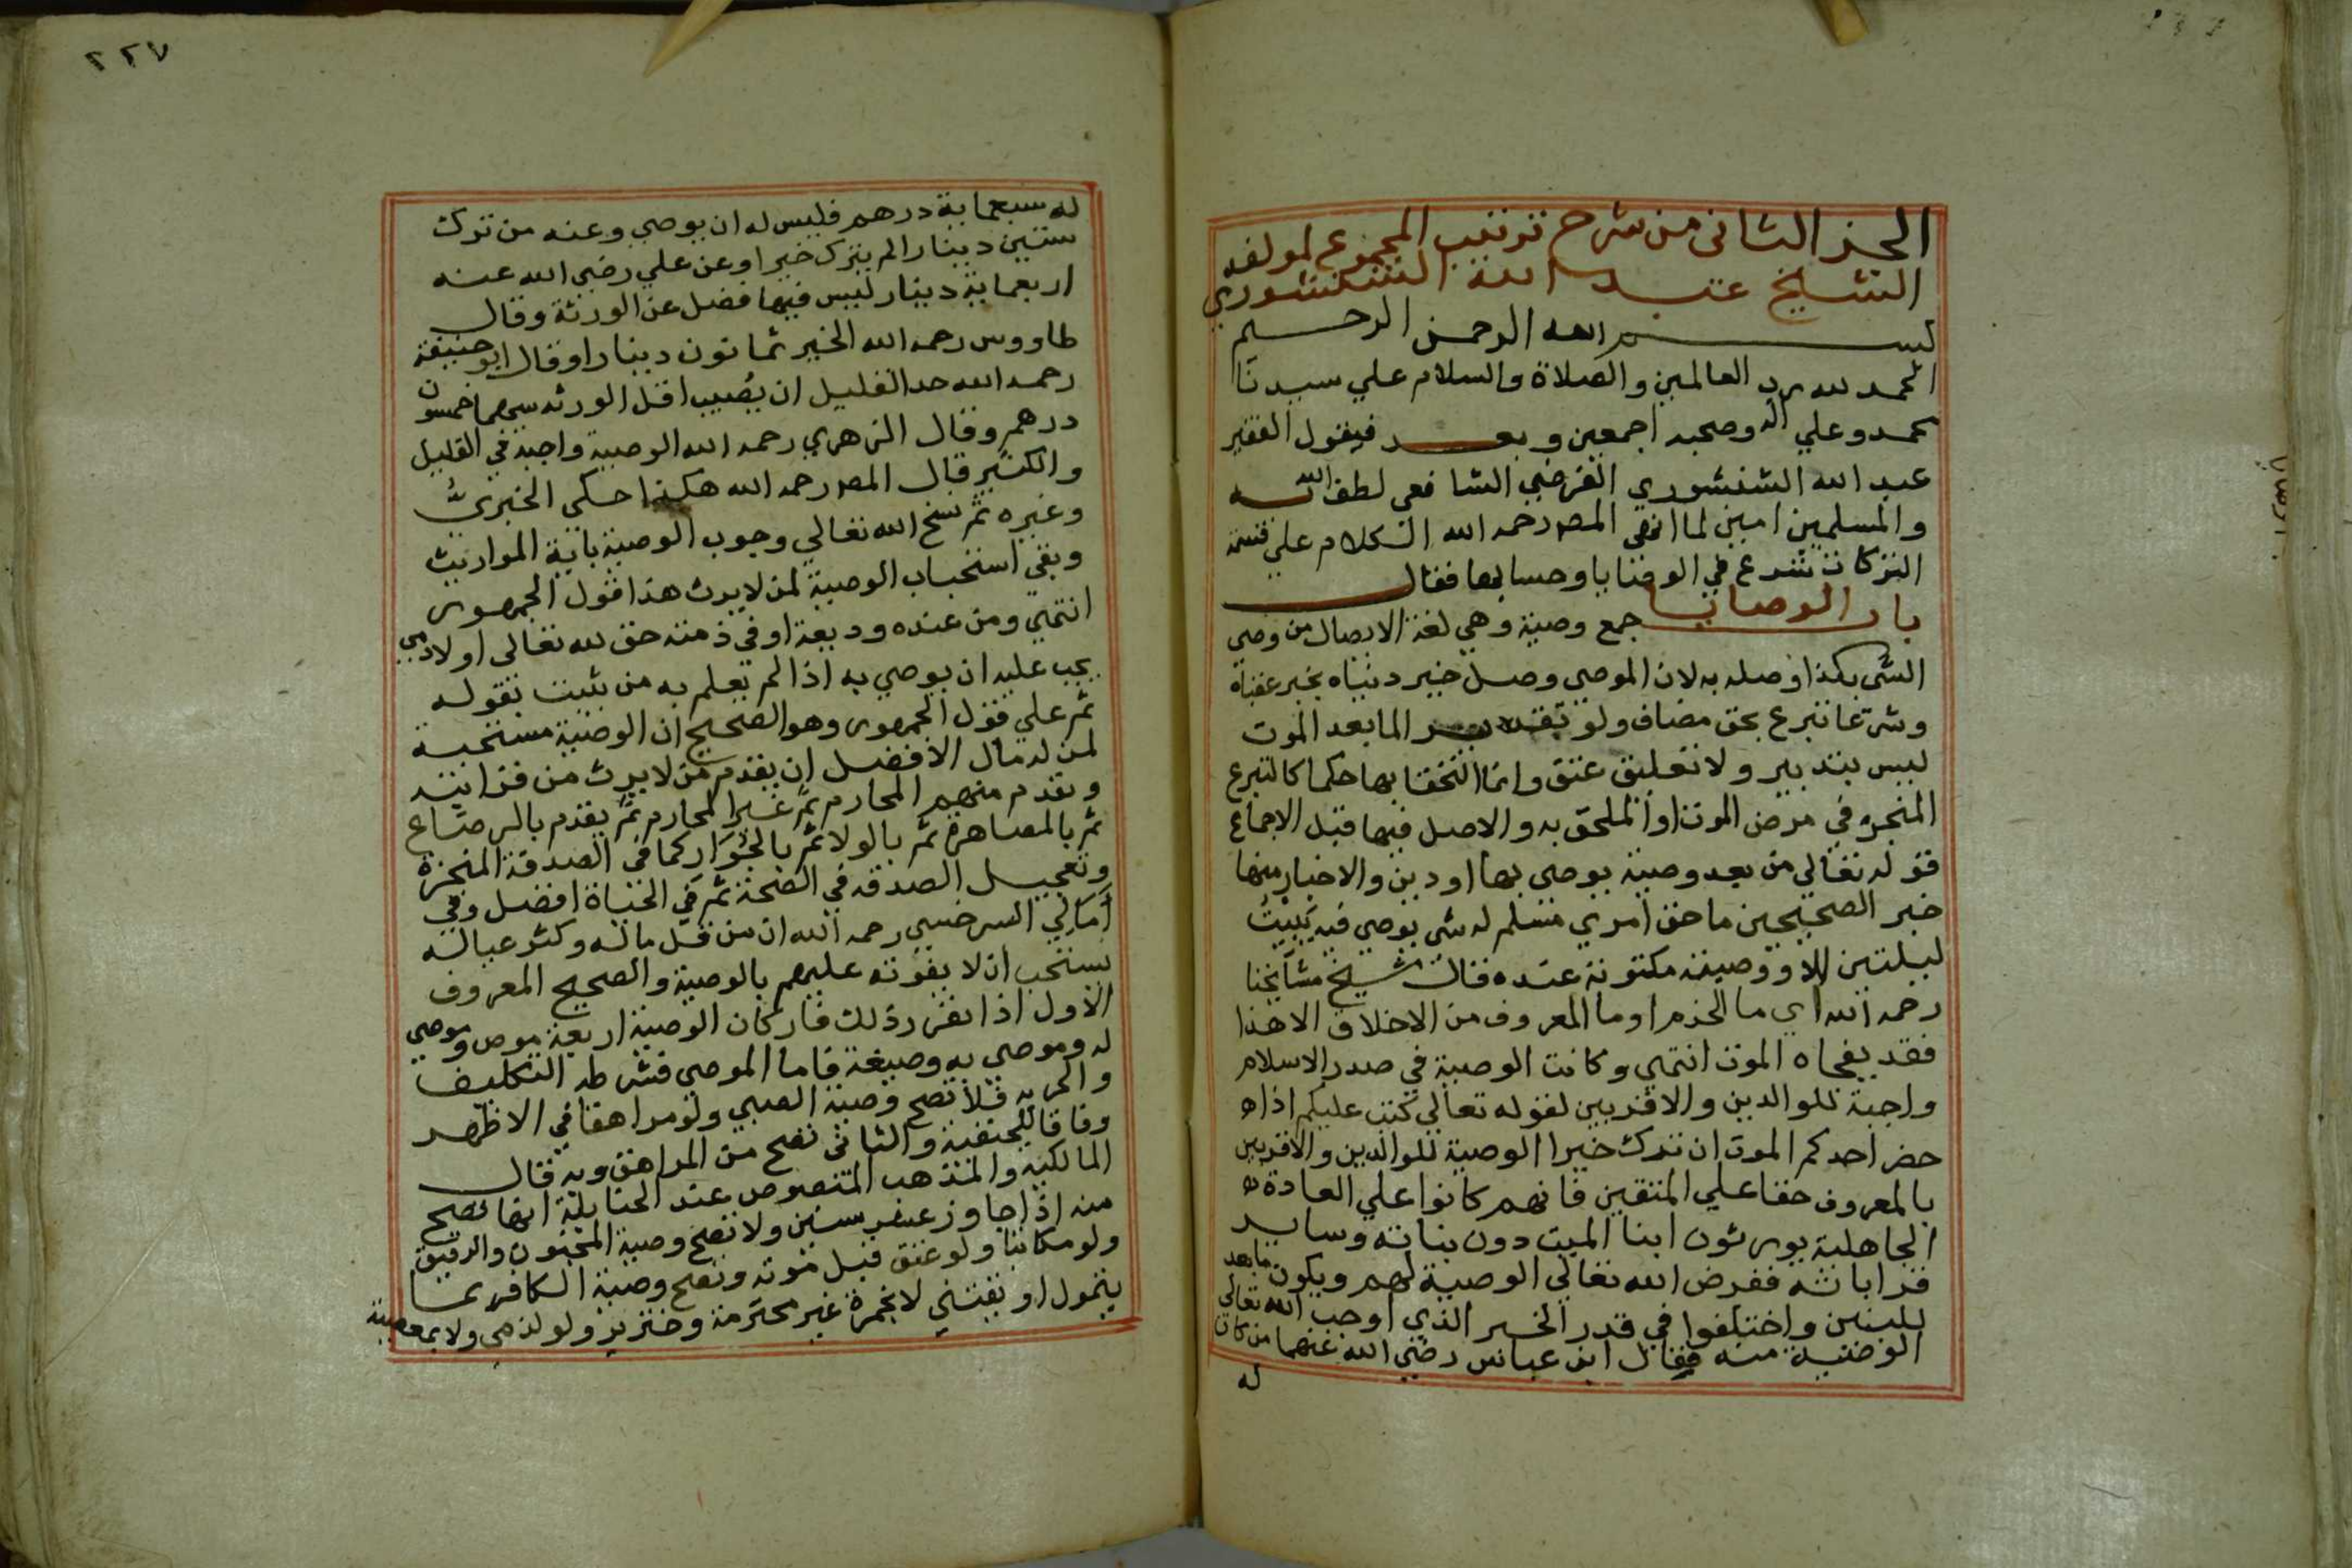 الجز الثانى من شرح ترتيب المجموع لمولفه
الشيخ عبد الله الشنشوري
بسم الله الرحمن الرحيم
الحمد لله رب العالمين والصلاة والسلام علي سيدنا
محمد وعلي اله وصحبه اجمعين وبعد فيقول الفقير
عبد الله الشنشوري الفرضي الشافعى لطف الله به
والمسلمين امين لما انهى المصر رحمه الله الكلام علي قسمة
التركات شرع في الوصايا وحسابها فقال
باب الوصايا جمع وصية وهي لغة الايصال من وصى
الشى بكذا اوصله به لان الموصى وصل خير دنياه بخير عقباه
وشرعا تبرع بحق مضاف ولو تقديرا لما بعد الموت
ليس بتدبير ولا تعليق عتق وانما التحقا بها حكما كالتبرع
المنجز في مرض الموت او الملحق به والاصل فيها قبل الاجماع
قوله تعالي من بعد وصية يوصى بها او دين والاخبار منها
خبر الصحيحين ما حق امري مسلم له شى يوصي فيه يبيت
ليلتين الا ووصيته مكتوبة عنده قال شيخ مشايخنا
رحمه الله اي ما الحزم او ما المعروف من الاخلاق الا هذا
فقد يفجاه الموت انتهي وكانت الوصية في صدر الاسلام
واجبة للوالدين والاقربين لقوله تعالي كتب عليكم اذا
حضر احدكم الموت ان ترك خيرا الوصية للوالدين والاقربين
بالمعروف حقا علي المتقين فانهم كانوا علي العادة
الجاهلية يورثون ابنا الميت دون بناته وساير
قراباته ففرض الله تعالي الوصية لهم ويكون ما بعد
للبنين واختلفوا في قدر الخير الذي اوجب الله تعالى
الوصية منه فقال ابن عباس رضي الله عنهما من كان
له
٢٢٧
له سبعماية درهم فليس له ان يوصي وعنه من ترك
ستين دينارا لم يترك خيرا وعن علي رضى الله عنه
اربعماية دينار ليس فيها فضل عن الورثة وقال
طاووس رحمه الله الخير ثمانون دينارا وقال ابو حنيفة
رحمه الله حد القليل ان يصيب اقل الورثه سهما خمسون
درهم وقال الزهري رحمه الله الوصية واجبة في القليل
والكثير قال المصر رحمه الله هكذا حكى الخبري
وغيره ثم نسخ الله تعالي وجوب الوصية باية المواريث
وبقي استحباب الوصية لمن لا يرث هذا قول الجمهور
انتهي ومن عنده وديعة او في ذمته حق لله تعالى او لادمي
يجب عليه ان يوصي به اذا لم يعلم به من يثبت بقوله
ثم علي قول الجمهور وهو الصحيح ان الوصية مستحبة
لمن له مال الافضل ان يقدم من لا يرث من قرابته
ويقدم منهم المحارم ثم غير المحارم ثم يقدم بالرضاع
ثم بالمصاهرة ثم بالولا ثم بالجوار كما في الصدقة المنجزة
وتعجيل الصدقه في الصحة ثم في الحياة افضل وفي
امالي السرخسي رحمه الله ان من قل ماله وكثر عياله
يستحب ان لا يفوته عليهم بالوصية والصحيح المعروف
الاول اذا تقرر ذلك فاركان الوصية اربعة موص وموصى
له وموصي به وصيغة فاما الموصي فشرطه التكليف
والحريه فلا تصح وصية الصبي ولو مراهقا في الاظهر
وفاقا للحنفية والثانى تصح من المراهق وبه قال
المالكيه والمذهب المنصوص عند الحنابلة انها تصح
منه اذا جاوز عشر سنين ولا تصح وصية المجنون والرقيق
ولو مكاتبا ولو عتق قبل موته وتصح وصية الكافر بما
يتمول او يقتنى لا بخمرة غير محترمة وخنزير ولو لذمي ولا بمعصية